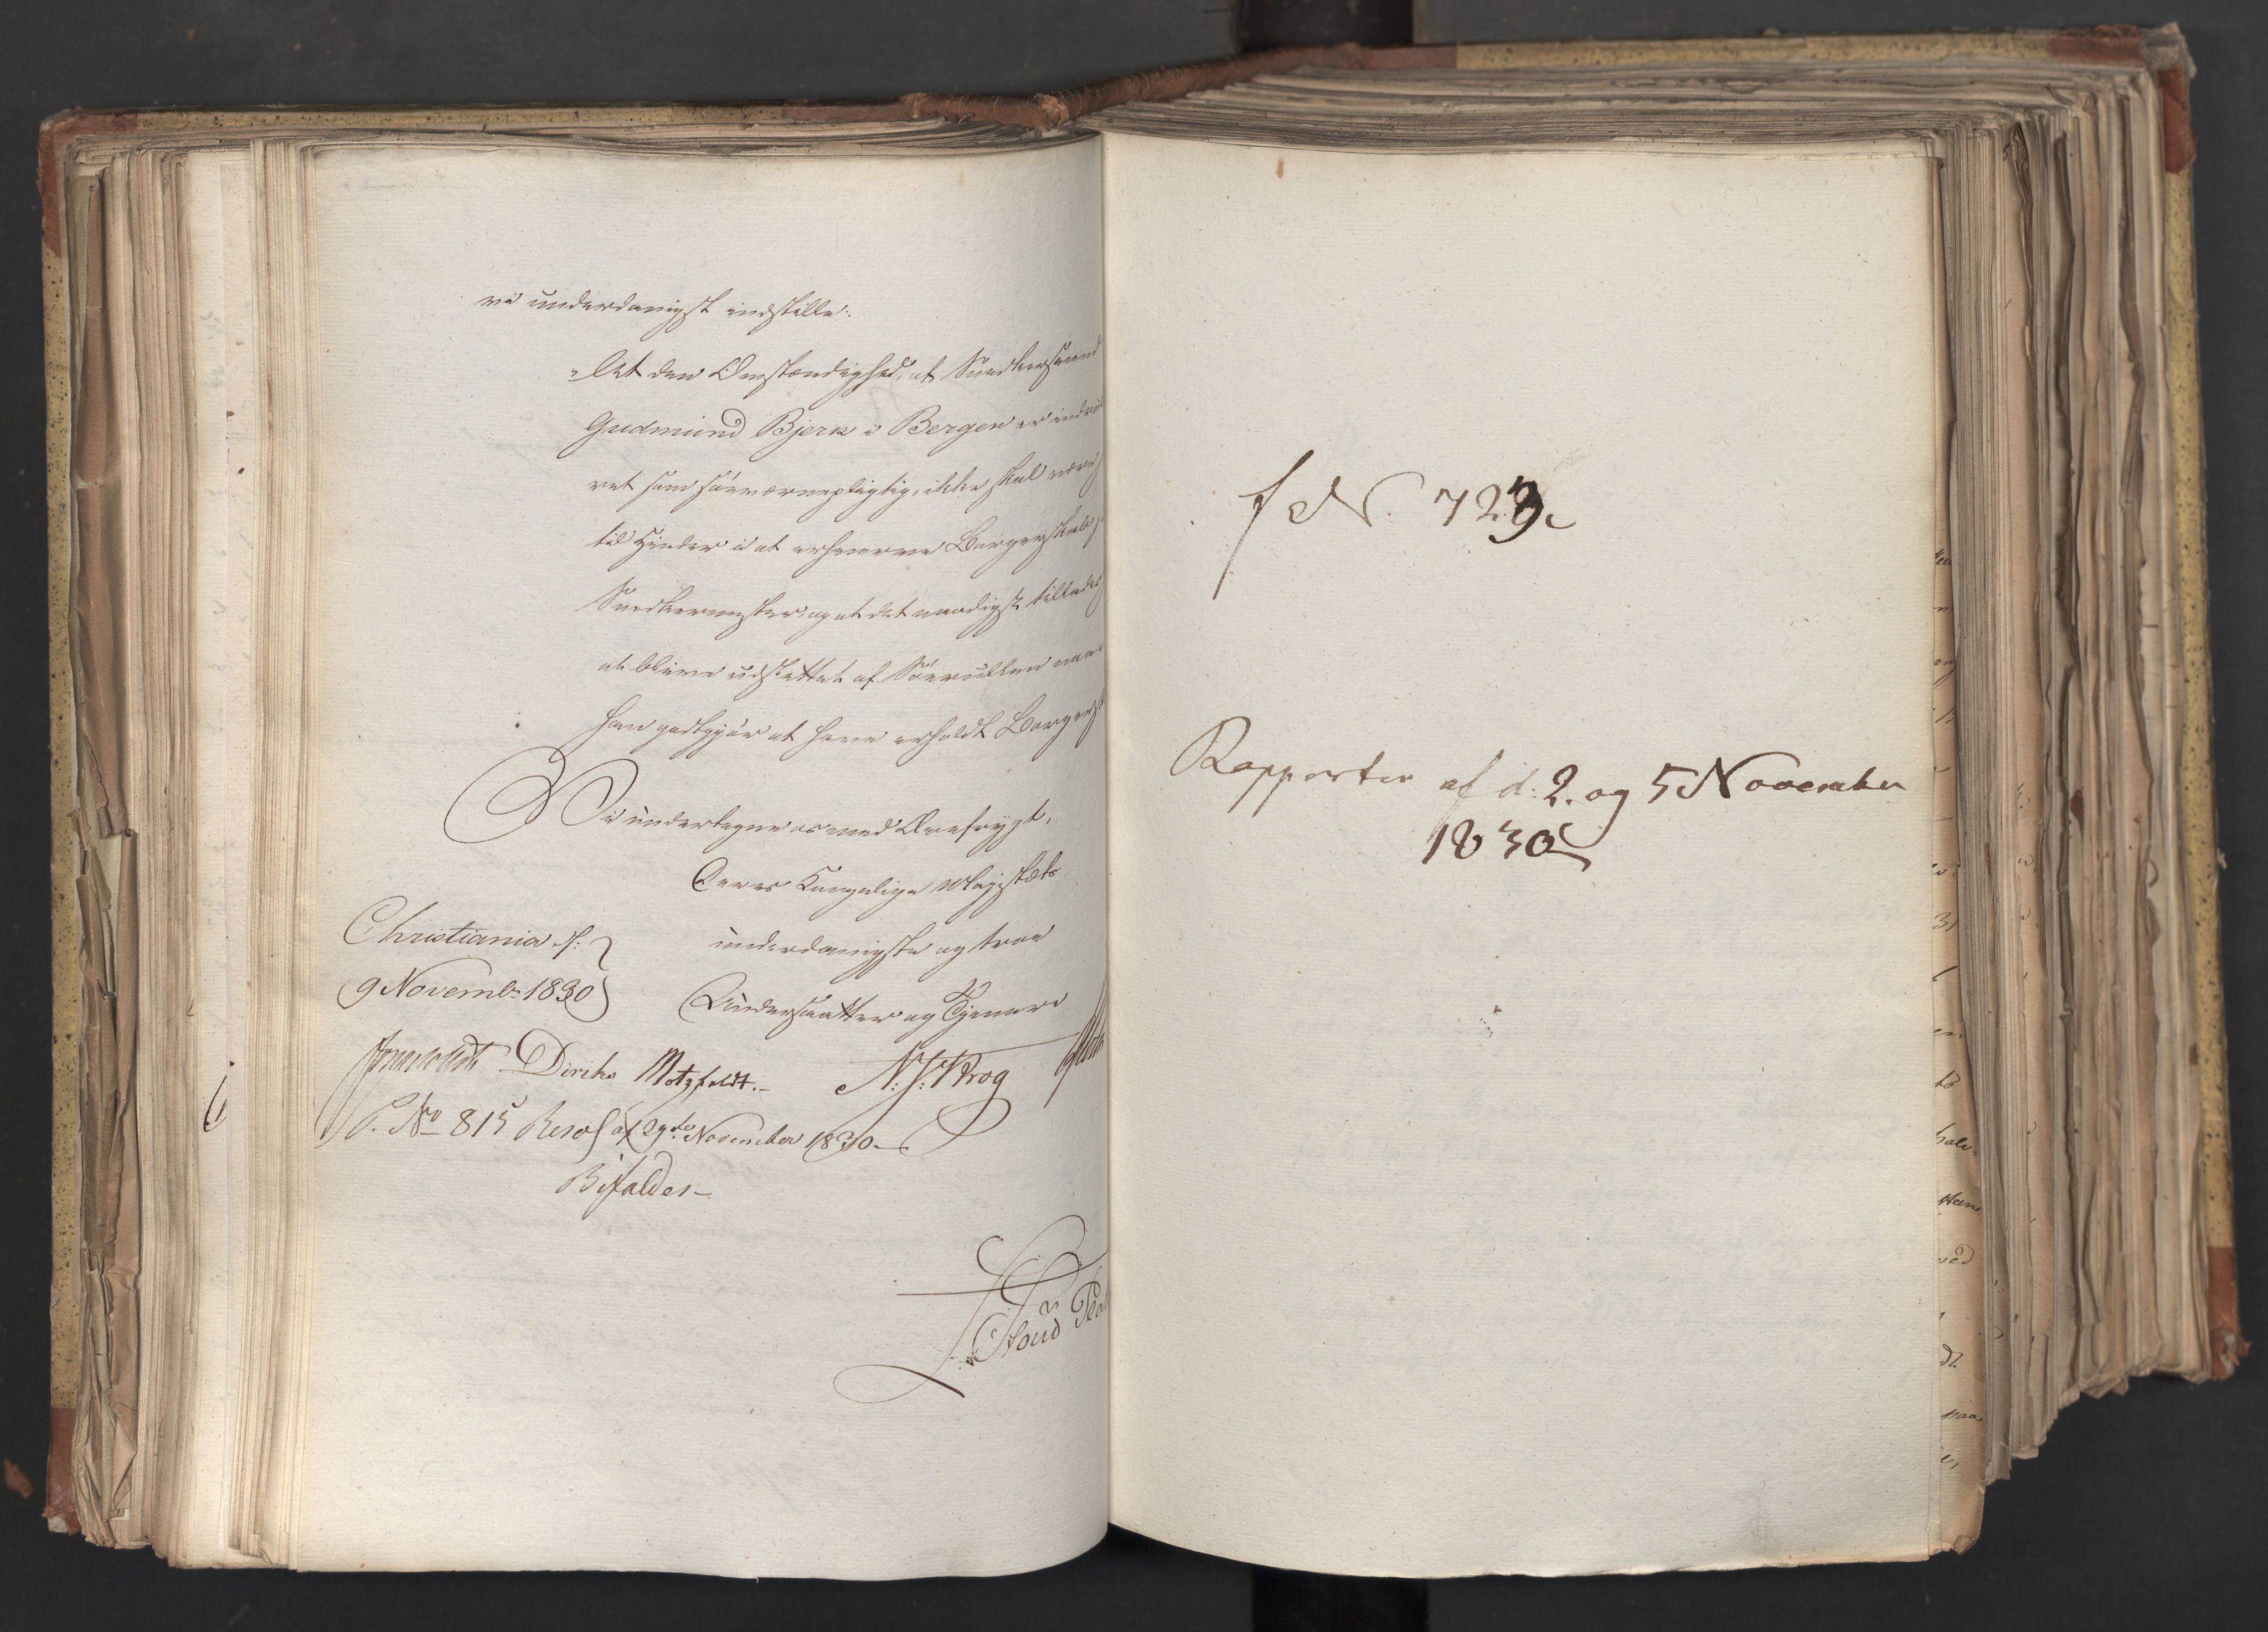 vi underdanigst indstille:
"At den Omstændighed, at Snedkersvend
Gudmund Bjerk i Bergen er indrul
ret som søeværnepligtig, ikke skal være
til Hinder i at erhverve Borgerskab
Snedkermester, og at det naadigst tillades
at blive udslettet af Søerullen naar
han godtgjør at have erholdt Borgersk
Vi undertegne os med Ærefrygt,
Deres Kongelige Majestæts
underdanigste og troe
Undersaatter og Tjenere
Christiania d:
9 Novembr 1830
Diriks Motzfeldt.- N: J: Krog
P. No 815 Resol af 29de November 1830.
Bifaldes-
f N. 723.
Rapporter af d: 2. og 5 November
1830